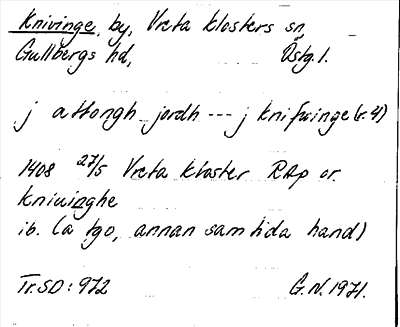 Knivinge, by, Vreta klosters sn,
Gullbergs hd, Östg.l.
j attongh jordh --- j knifwinge (r. 4)
1408 27/5 Vreta kloster RAp or.
kniuinghe
ib. (a tgo, annan samtida hand)
Tr. SD: 972 G.N. 1971.